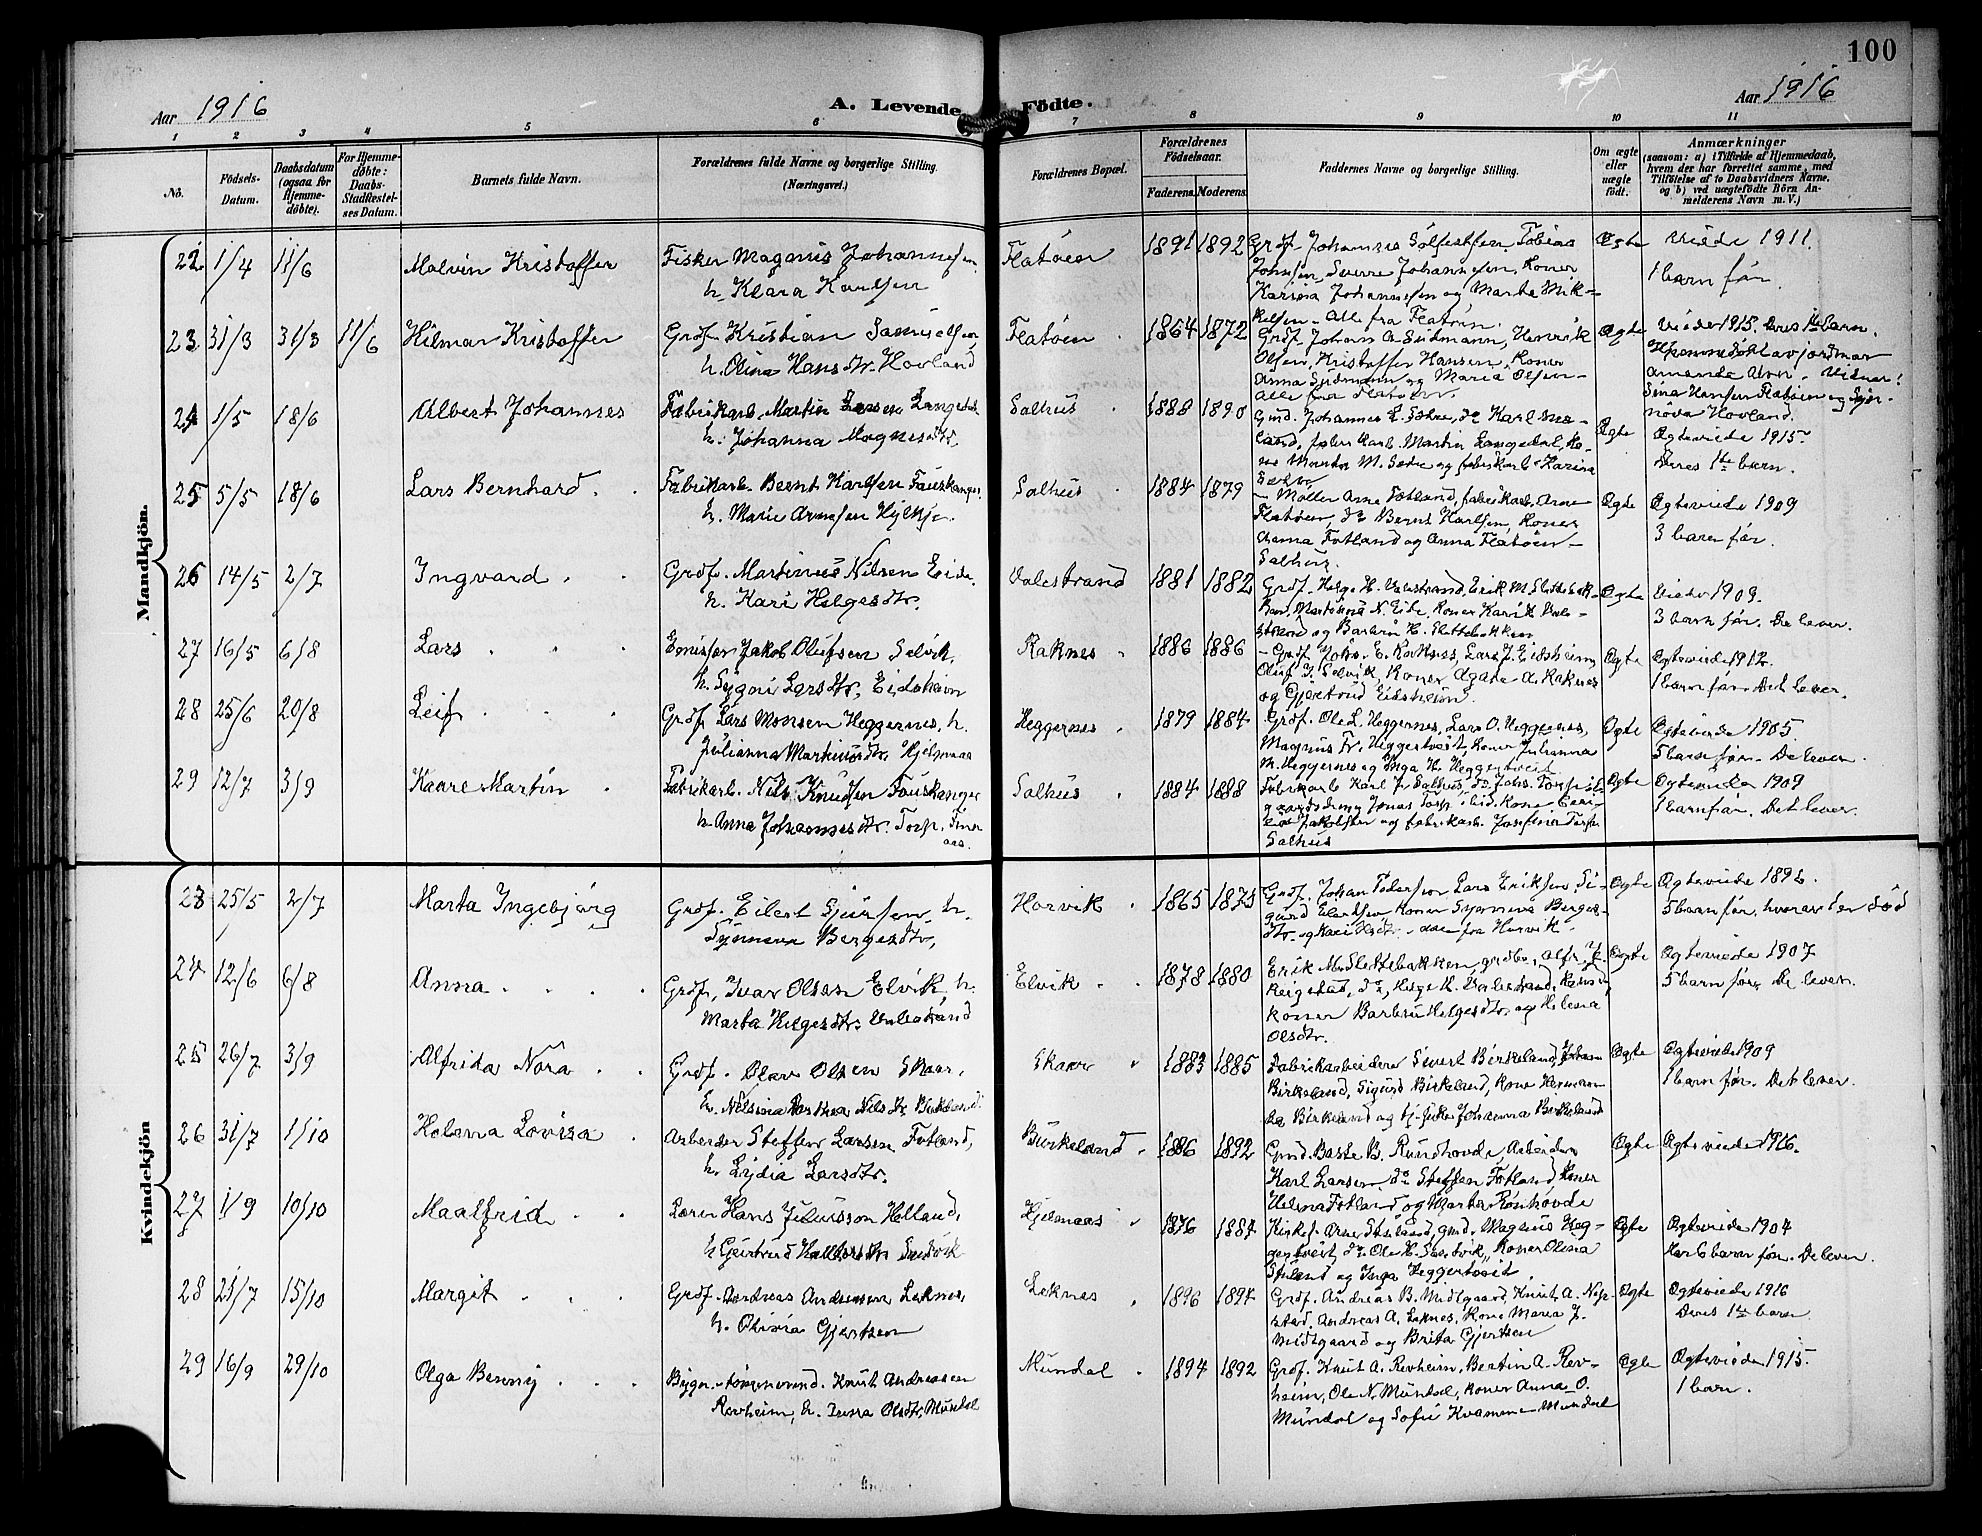 100
Aar 1916
A. Levende Födte.
Aar 1916
1 2 3 4 5 6 7 8 9 10 11
No.
Födsels-Datum.
Daabsdatum (ogsaa for Hjemme-döbte).
For Hjemme-döbte: Daabs-Stadfæstel-ses Datum.
Barnets fulde Navn.
Forældrenes fulde Navne og borgerlige Stilling.
(Næringsvei.)
Forældrenes Bopæl.
Forældrenes Födselsaar.
Faderens. Moderens.
Faddernes Navne og borgerlige Stilling.
Om ægte eller uægte födt.
Anmærkninger
(saasom: a) i Tilfælde af Hjemmedaab,
hvem der har forrettet samme, med
Tilföielse af to Daabsvidners Navne,
og b) ved uægtefödte Börn An-
melderens Navn m. V.)
Mandkjön.
22 1/4 11/6 Malvin Kristoffer
Fisker Magnus Johannesen
h. Klara Karlsen
Flatöen 1891 1892
Grdf. Johannes Sölfestsen, Tobias
Johnsen, Sverre Johannesen, Koner
Karina Johannesen og Marta Mik-
kelsen - Alle fra Flatöen.
Ægte
Viede 1911.
1 barn för.
23 31/3 31/3 11/6 Hilmar Kristoffer
Grdf. Kristian Samuelsen,
h. Olina Hansdtr. Hovland
Flatöen 1864 1872
Grdf. Johan A. Sudmann, Henrik
Olsen, Kristoffer Hansen, Koner
Anna Sudmann og Maria Olsen -
Alle fra Flatöen.
Ægte
Viede 1915. Deres 1ste barn.
Hjemmedöbt av jordmor
Vidner:
Sina Hansen Flatöen og
Hovland.
24 1/5 18/6 Albert Johannes
Fabrikarb. Martin Larsen
h. Johanna Magnesdtr.
Salhus 1888 1890
Ægte
Ægteviede 1915.
Deres 1ste barn.
25 5/5 18/6 Lars Bernhard
Fabrikarb. Bernt Karlsen Fauskanger
h. Marie Arnesen Hylkje.
Salhus 1884 1879
Möller Arne Fotland, fabrikarb. Arne
Flatöen, do Bernt Karlsen, Koner
Anna Fotland og Anna Flatöen -
Salhus.
Ægte
Ægteviede 1909
3 barn för.
26 14/5 2/7 Ingvard
Grdf. Martinus Nilsen Eide.
h. Kari Helgesdtr.
Valestrand 1881 1882
Grdf. Helge H. Valestrand, Erik M. Slettebak-
ken, Martinus N. Eide, Koner Kari H. Vale-
strand og Barbru H. Slettebakken
Ægte
Viede 1903.
3 barn för. De lever.
27 16/5 6/8 Lars
Emissær Jakob Olufsen Selvik,
h. Sygni Larsdtr. Eidsheim
Raknes 1886 1886
Grdf. Johs. E. Raknes, Lars J. Eidsheim
Oluf J. Selvik, Koner Agate A. Raknes
og Gjertrud Eidsheim.
Ægte
Ægteviede 1912.
1 barn för. Det lever.
28 25/6 20/8 Leif
Grdf. Lars Monsen Heggernes, h.
Julianna Martinusdtr. Hjelmaas
Heggernes 1879 1884
Grdf. Ole L. Heggernes, Lars O. Heggernes,
Magnus Fr. Heggertveit, Koner Julianna
M. Heggernes og Inga H. Heggertveit
Ægte
Ægteviede 1905.
5 barn för. De lever.
29 12/7 3/9 Kaare Martin
Fabrikarb. Nils Knudsen Fauskanger
h. Anna Johannesdtr. Torp,
Salhus 1884 1888
Fabrikarb. Karl J. Salhus, do Johs. Torp
Salhus
Ægte
Ægteviede 1909
1 barn för. Det lever.
Kvindekjön
23 25/5 2/7 Marta Ingebjörg
Grdf. Eilert Sjursen, h.
Synneva Bergesdtr.
Horvik 1865 1873
Grdf. Johan Pedersen, Lars Eriksen, Si-
gurd Eilertsen, Koner Synneva Berges-
dtr. og Kari - alle fra Horvik.
Ægte
Ægteviede 1892.
5 barn för, hvorav 1 er död
24 12/6 6/8 Anna
Grdf. Ivar Olsen Elvik, h.
Marta Helgesdtr. Valestrand
Elvik 1878 1880
Erik M. Slettebakken, grdbr. Alfr. J.
Reigstad, do, Helge H. Valestrand,
koner Barbru Helgesdtr. og Helena
Olsdtr.
Ægte
Ægteviede 1907
5 barn för. De lever.
25 26/7 3/9 Alfrida Nora
Grdf. Olav Olsen Skaar,
h. Nilsina Nilsdtr. Birkeland.
Skaar 1883 1885
Fabrikarbeider Sivert Birkeland, Johan
Birkeland, Sigurd Birkeland, Kone
Birkeland og Johanna Birkeland
Ægte
Ægteviede 1909
1 barn för. Det lever.
26 31/7 1/10 Helena Lovisa
Arbeider Steffen Larsen Fotland,
h. Lydia Larsdtr.
Birkeland 1886 1892
Gmd. Baste B. Rundhovde, Arbeider
Karl Larsen, do Steffen Fotland, Koner
Helena Fotland og Marta Rundhovde
Ægte
Ægteviede 1916.
27 1/9 10/10 Maalfrid
Lærer Hans Johnsson Helland,
h. Gjertrud
Hjelmaas 1876 1884
Magnus Heg-
gertveit, do Ole H. Sandvik, Koner Olina
og Inga Heggertveit.
Ægte
Ægteviede 1904
Har 6 barn för. De lever.
28 21/7 15/10 Margit
Grdf. Andreas Andersen Leknes,
h. Olivia Gjertsen
Leknes 1896 1894
Grdf. Andreas B. Midtgaard, Knut A. Nep-
stad, Andreas A. Leknes, Kone Maria J.
Midtgaard og Brita Gjertsen
Ægte
Ægteviede 1916
Deres 1ste barn
29 16/9 29/10 Olga Benny
Bygn. tömmermd. Knut Andreassen
Revheim, h. Olsdtr. Mundal
Mundal 1894 1892
Grdf. Knut A. Revheim, Bertin A. Rev-
heim, Ole N. Mundal, Koner Anna O.
Mundal og Sofie Kvamme - Mundal
Ægte
Ægteviede 1915.
1 barn.